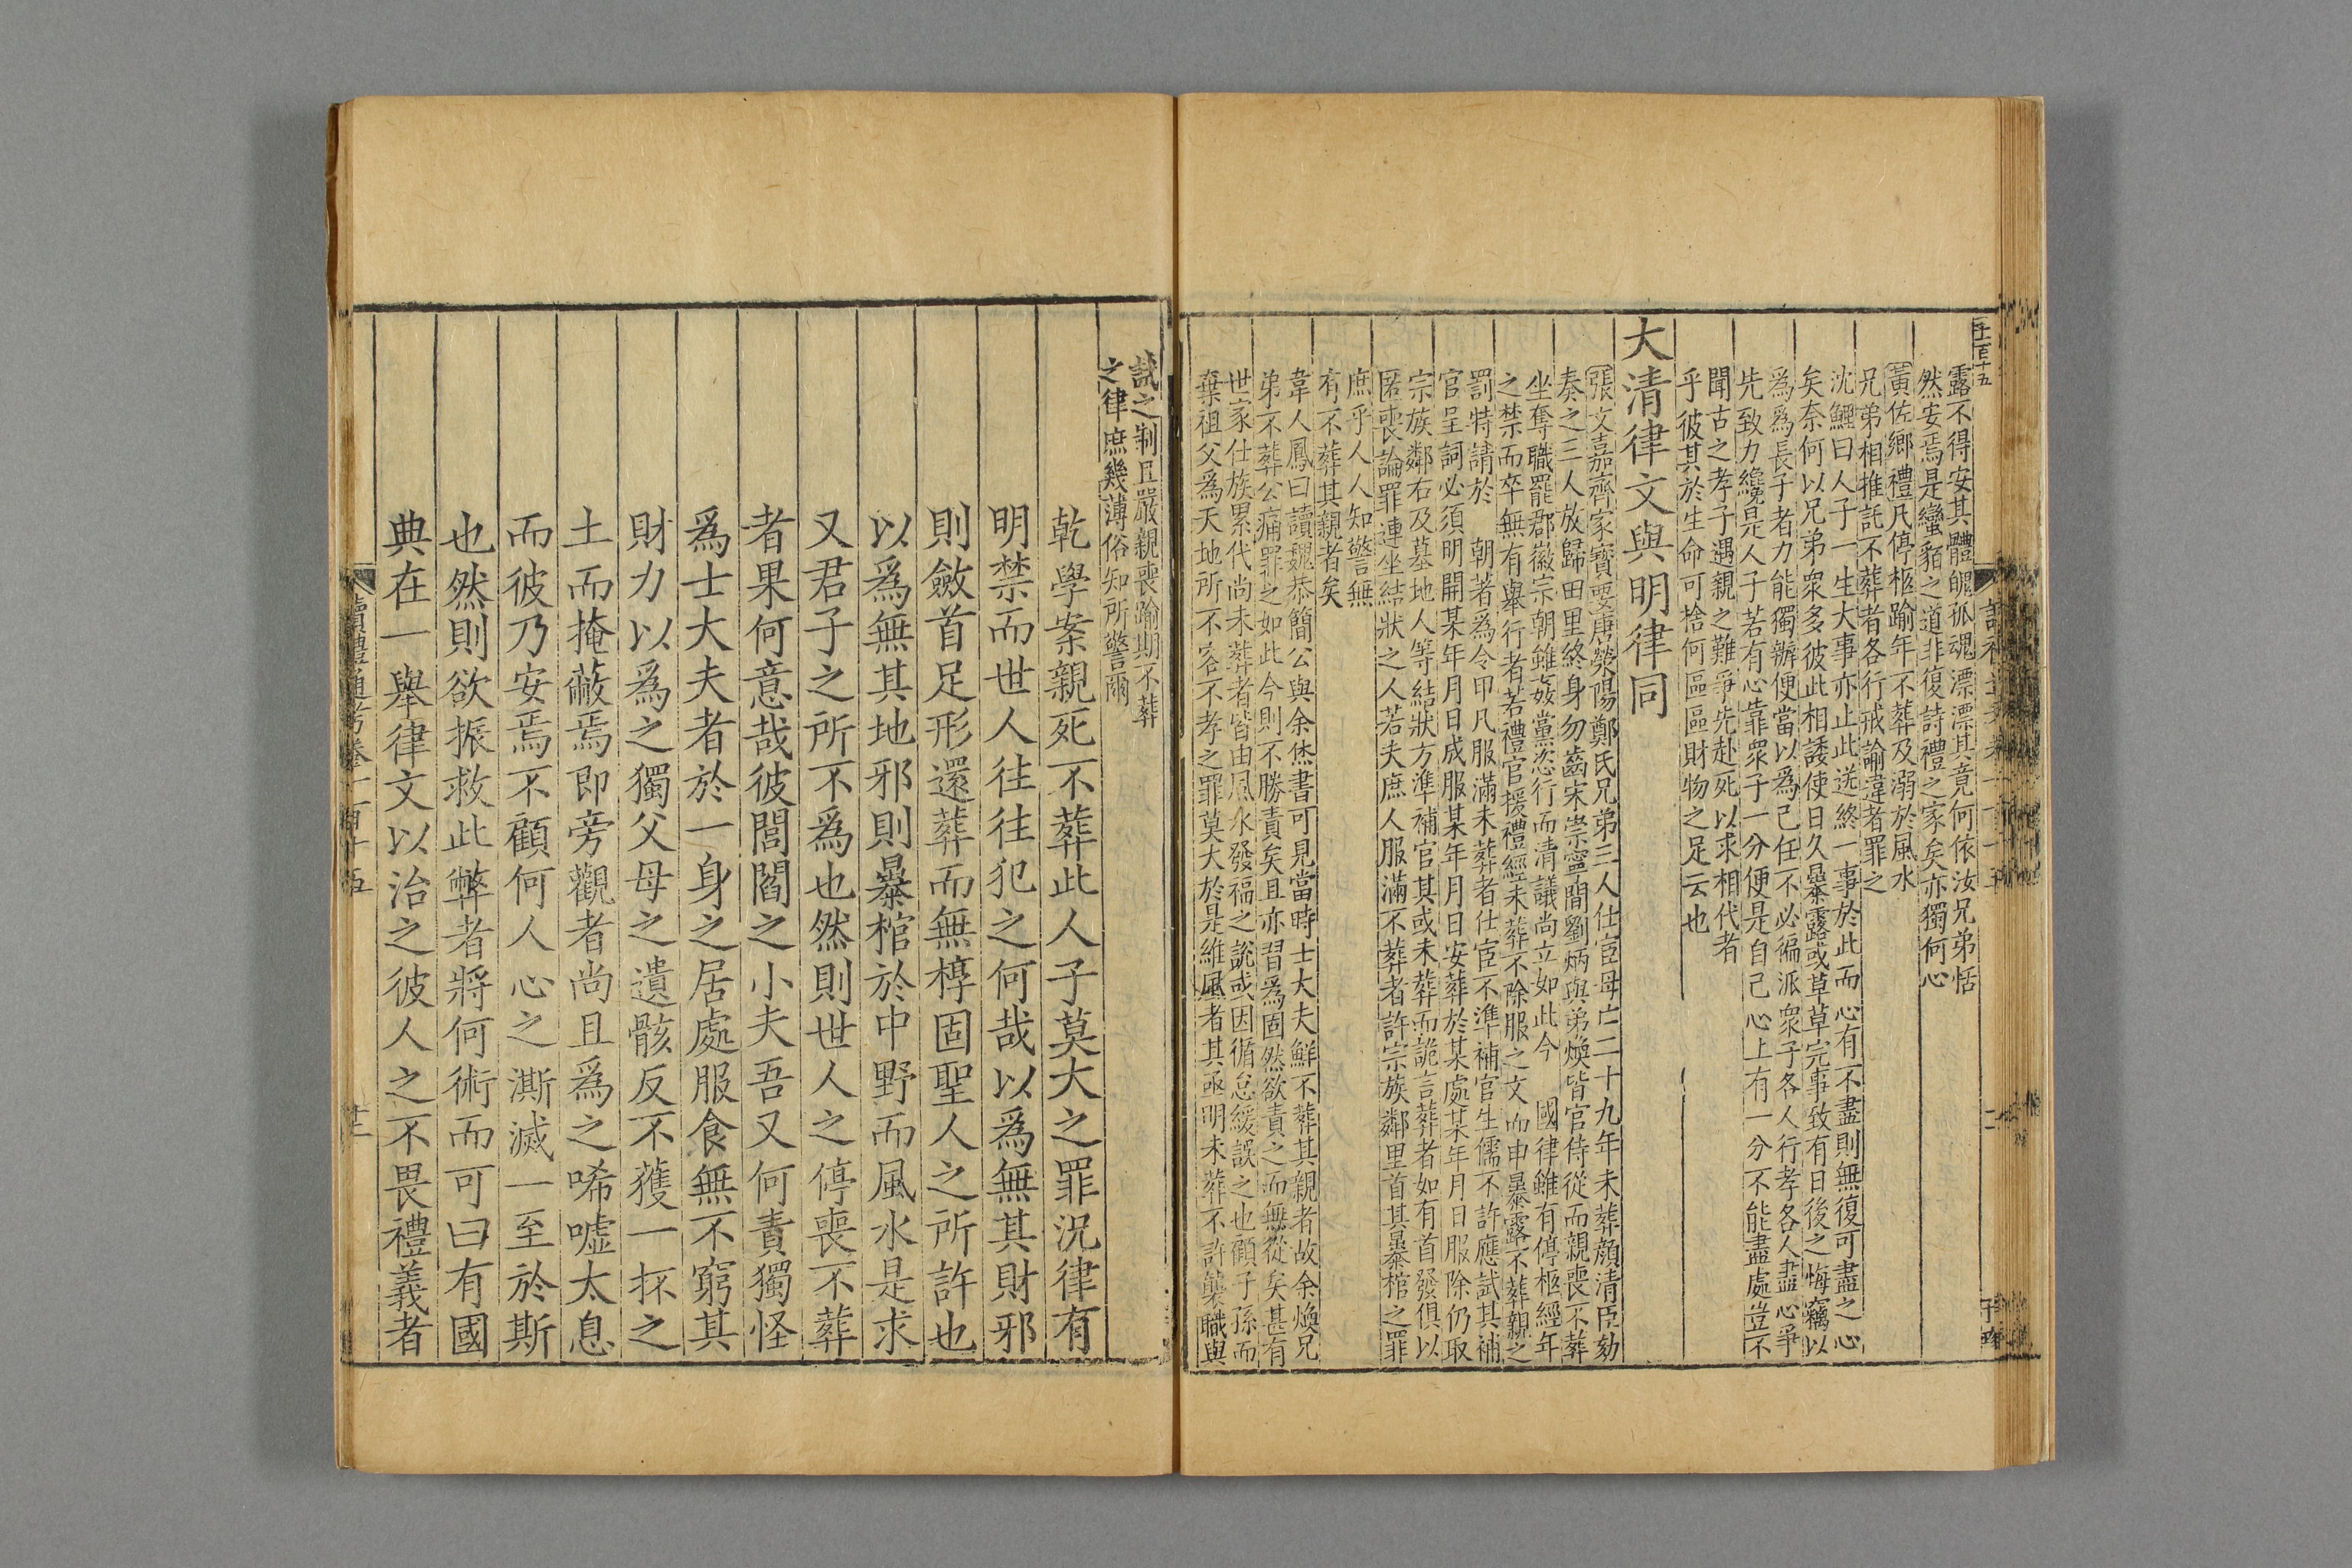 露不得安其體魄孤魂漂漂其竟何依汝兄弟恬
然安焉是蠻貊之道非復詩禮之家矣亦獨何心
黃佐鄉禮凡停柩踰年不葬及溺於風水
兄弟相推託不葬者各行戒諭違者罪之
沈鯉曰人子一生大事亦止此送終一事於此而心有不盡則無復可盡之心
矣奈何以兄弟眾多彼此相諉使日久暴露或草草完事致有日後之悔竊以
為為長子者力能獨辦便當以為己任不必徧派眾子各人行孝各人盡心爭
先致力纔是人子若有心靠眾子一分便是自己心上有一分不能盡處豈不
聞古之孝子遇親之難爭先赴死以求相代者
乎彼其於生命可捨何區區財物之足云也
大清律文與明律同
張文嘉齊家寶要唐滎陽鄭氏兄弟三人仕宦母亡二十九年未葬顏清臣劾
奏之三人放歸田里終身勿齒宋崇寧間劉炳與弟煥皆官侍從而親喪不葬
坐奪職罷郡徽宗朝雖姦黨恣行而清議尚立如此今 國律雖有停柩經年
之禁而卒無有舉行者若禮官援禮經未葬不除服之文而申暴露不葬親之
罰特請於 朝著為令甲凡服滿未葬者仕宦不準補官生儒不許應試其補
官呈詞必須明開某年月日成服某年月日安葬於某處某年月日服除仍取
宗族鄰右及墓地人等結狀方準補官其或未葬而詭言葬者如有首發俱以
匿喪論罪連坐結狀之人若夫庶人服滿不葬者許宗族鄰里首其暴棺之罪
庶乎人人知警無
有不葬其親者矣
韋人鳳曰讀魏恭簡公與余烋書可見當時士大夫鮮不葬其親者故余煥兄
弟不葬公痛罪之如此今則不勝責矣且亦習為固然欲責之而無從矣甚有
世家仕族累代尚未葬者皆由風水發福之說或因循怠緩誤之也顧子孫而
棄祖父為天地所不容不孝之罪莫大於是維風者其亟明未葬不許襲職與
試之制且嚴親喪踰期不葬
之律庶幾薄俗知所警爾
乾學案親死不葬此人子莫大之罪況律有
明禁而世人往往犯之何哉以為無其財邪
則斂首足形還葬而無椁固聖人之所許也
以為無其地邪則暴棺於中野而風水是求
又君子之所不為也然則世人之停喪不葬
者果何意哉彼閭閻之小夫吾又何責獨怪
爲士大夫者於一身之居處服食無不窮其
財力以爲之獨父母之遺骸反不獲一抔之
土而掩蔽焉即旁觀者尚且爲之唏噓太息
而彼乃安焉不顧何人心之澌滅一至於斯
也然則欲振救此弊者將何術而可曰有國
典在一舉律文以治之彼人之不畏禮義者
讀禮通考卷一百十五